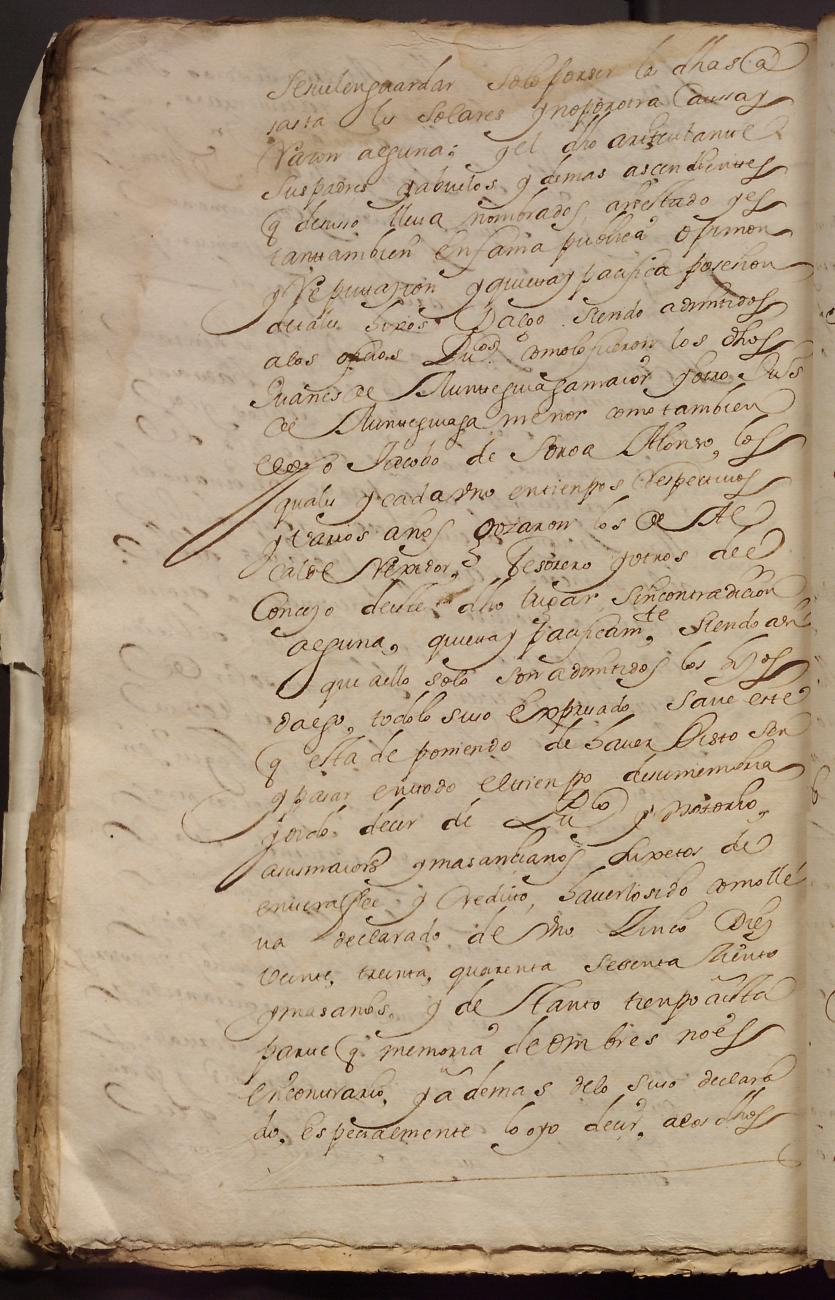 Suelen guardar solo por ser la dhas Ca
sas ta los Solares y no por otra Caussa y
Razon alguna; y el dho articulante
Sus padres y abuelos y demas ascendientes
q deuso lleua nombrados an estado y es
tan tambien en fama publica opinion
y Reputazion y quieta y pacifica posesion
de tales hixos Dalgo siendo admitidos
a los ofizios como lo fueron los dhos
Juanes de mayor y otro Juanes
de menor como tambien
el dho Jacobo de Soroa Alonso, los
quales y cada Vno en tienpos Respectiuos
y Varios años gozaron los de Al
calde Rexidor, Tesorero y otros del
Conzejo deste dho lugar sin contradicion
alguna, quieta y pacificamte, siendo assi
que a ello solo son admitidos los hijos
dalgo, todo lo suso expresado saue este
q esta deponiendo de hauer Visto ser
y pasar en todo el tienpo de su memoria
y oido decir de Puco y Notorio,
a sus maiores y mas ancianos suxetos de
entera fee y Credito, hauerlo sido como lle
ua declarado de Vno Zinco Diez
veinte, treinta, quarenta sesenta Ziento
y mas anos, y de tanto tienpo a esta
parte q memoria de ombres no es
en contrario, y a demas delo suso declara
do, especialmente lo oyo decir, a los dhos